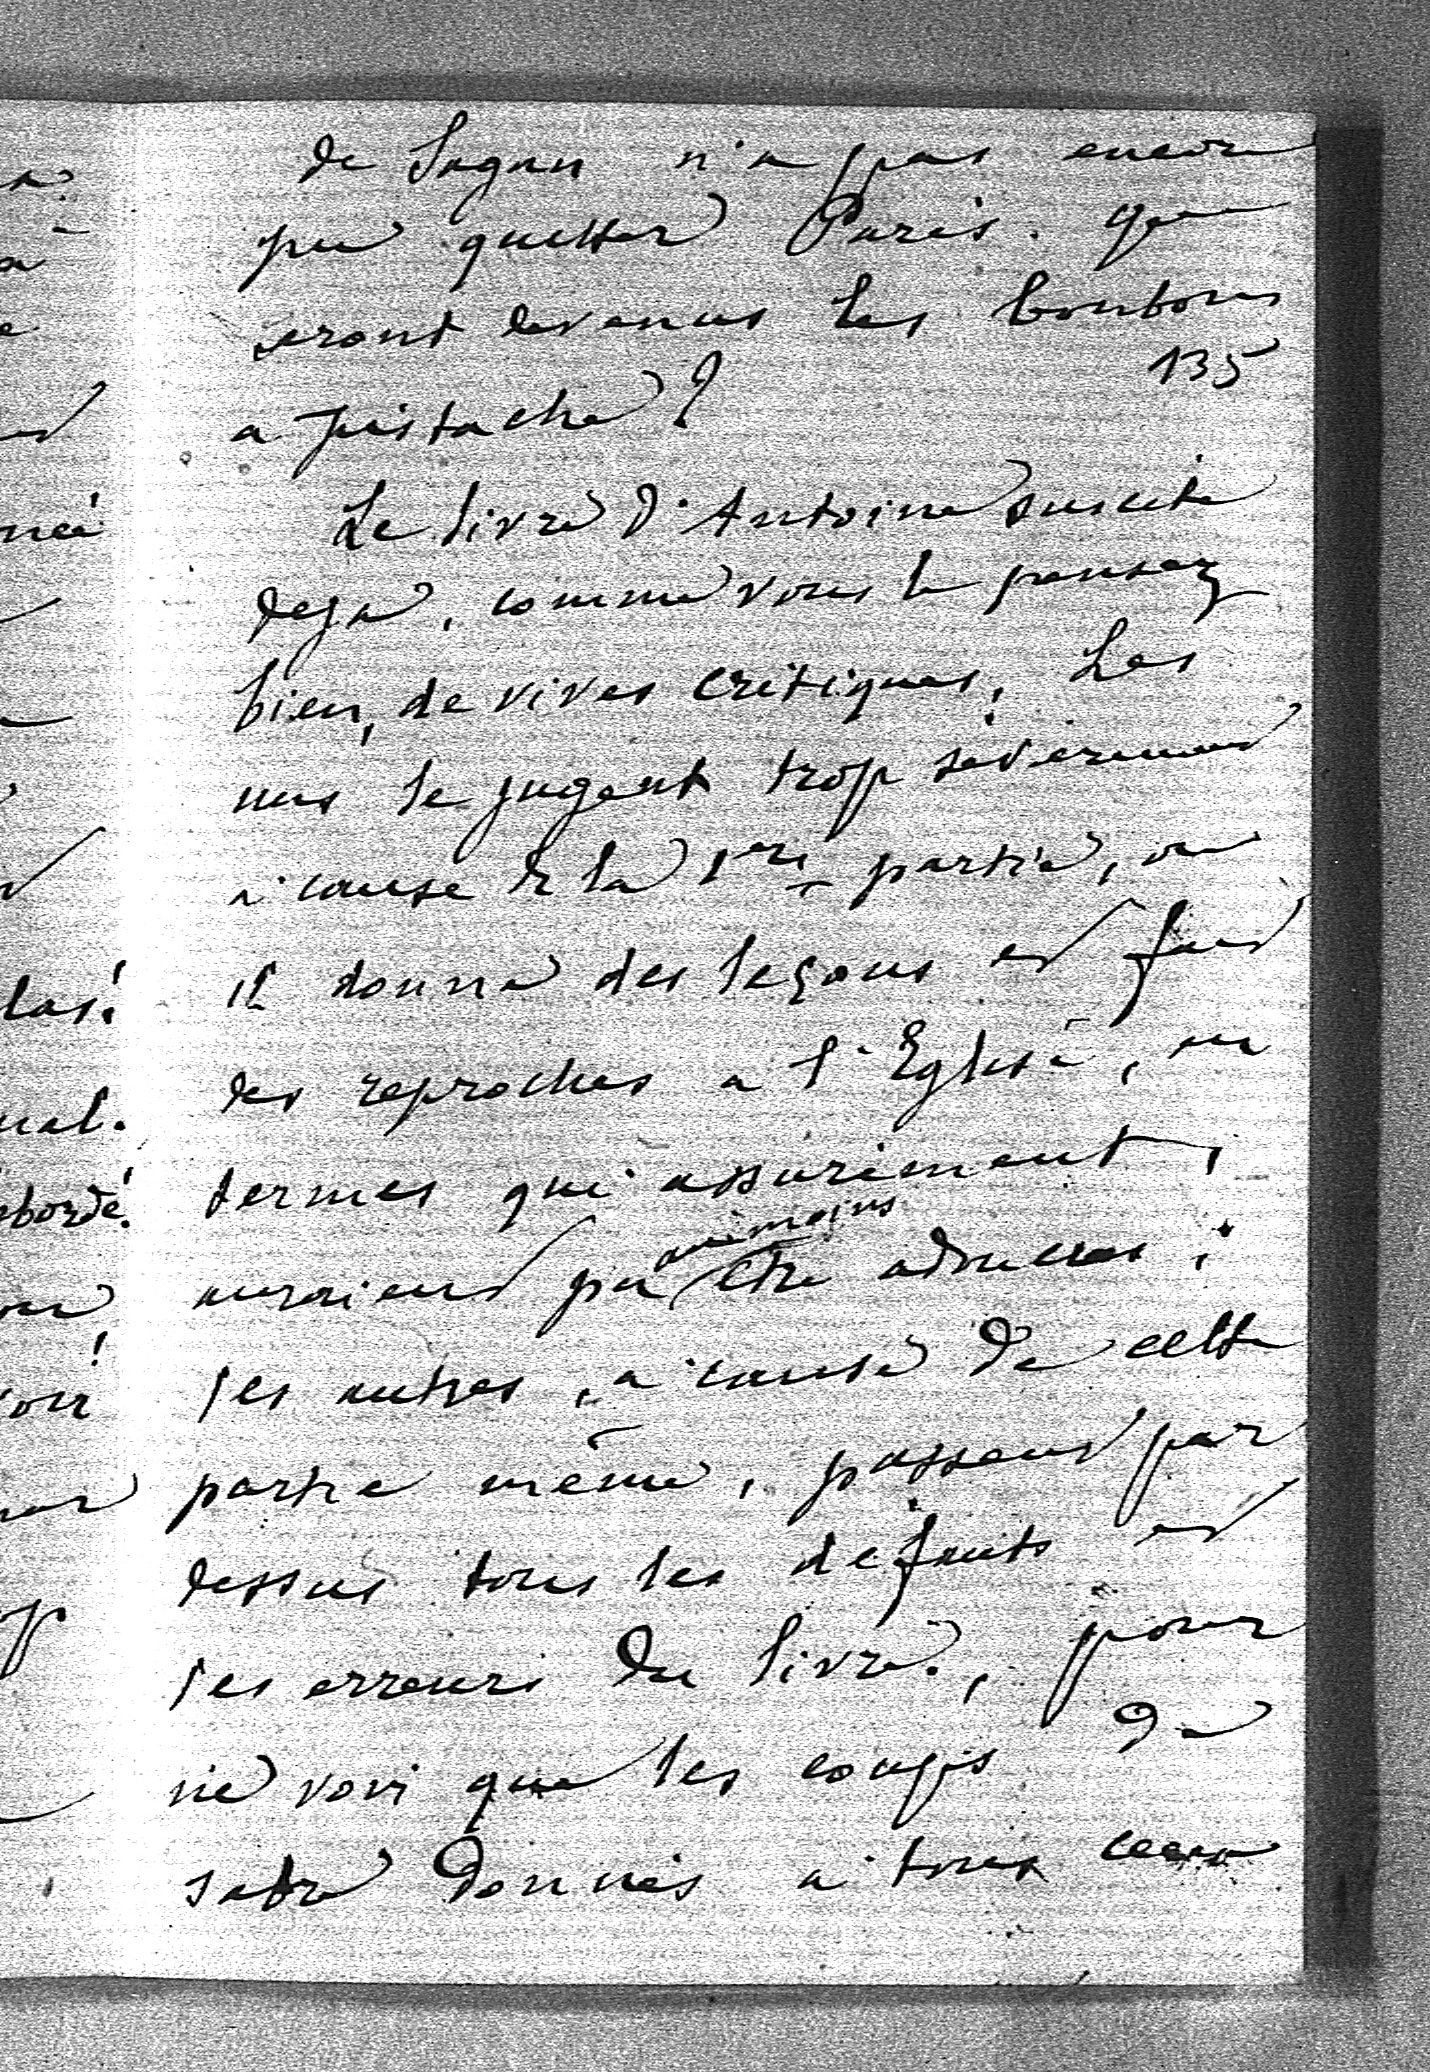 de Sagan n'a pas encore
pu quitter Paris. que
seront devenus les bonbons
135
a pistache ?
Le livre d'Antoine suscite
deja, comme vous le pensez
bien, de vives critiques. Les
uns le jugent trop sévèrement
à cause de la 1ere partie, ou
il donne des leçons et fait
des reproches a l'Eglise, en
termes qui assurément,
auraient pu au moins être adoucis ;
les autres, à cause de cette
partie même, passent par
dessus tous les defauts et
les erreurs du livre, pour
ne voir que les coups de
sabre donnés à tous ceux